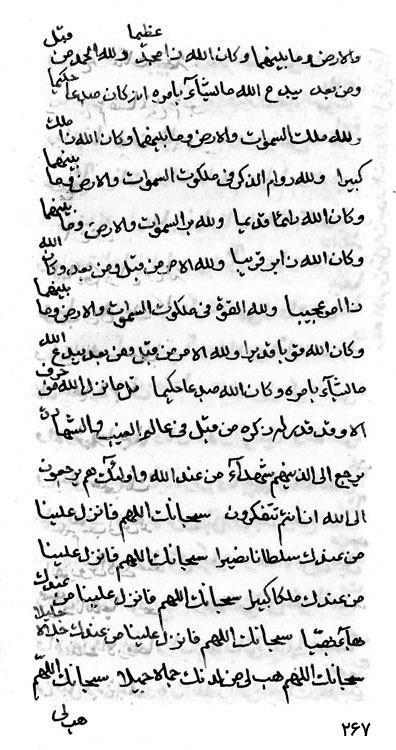 عظیما قبل
والارض وما بینهما وکان الله ذا مجد ولله المجد من
حکیما
ومن بعد یبدع الله ما یشآء بامره انه کان صداعا
ملک
ولله ملک السموات والارض وما بینهما وکان الله ذا
بینهما
کبیرا ولله دوام الذکر فی ملکوت السموات والارض وما
بینهما
وکان الله دائما قدیما ولله بر السموات والارض وما
الله
وکان الله ذا بر قریبا ولله الامر من قبل ومن بعد وکان
بینهما
ذا امر عجیبا ولله القوة فی ملکوت السموات والارض وما
الله
وکان الله قویا قدیرا ولله الامر من قبل ومن بعد یبدع
حرف
ما یشآء بامره وکان الله مبدعا حکیما قل ما نزل الله من
الا وقد قدر له ذکره من قبل فی عالم الغیب والشهادة
یرجع الی الذینهم شهدآء من عند الله واولئک هم یرجعون
الی الله ان انتم تتفکرون سبحانک اللهم فانزل علینا
من عندک سلطانا نصیرا سبحانک اللهم فانزل علینا
عندک
من عندک ملکا کبیرا سبحانک اللهم فانزل علینا من
جلیلا
بهآء بهیا سبحانک اللهم فانزل علینا من عندک جلالا
سبحانک اللهم هب لی من لدنک جمالا جمیلا سبحانک اللهم
هب لی
۲۶۷